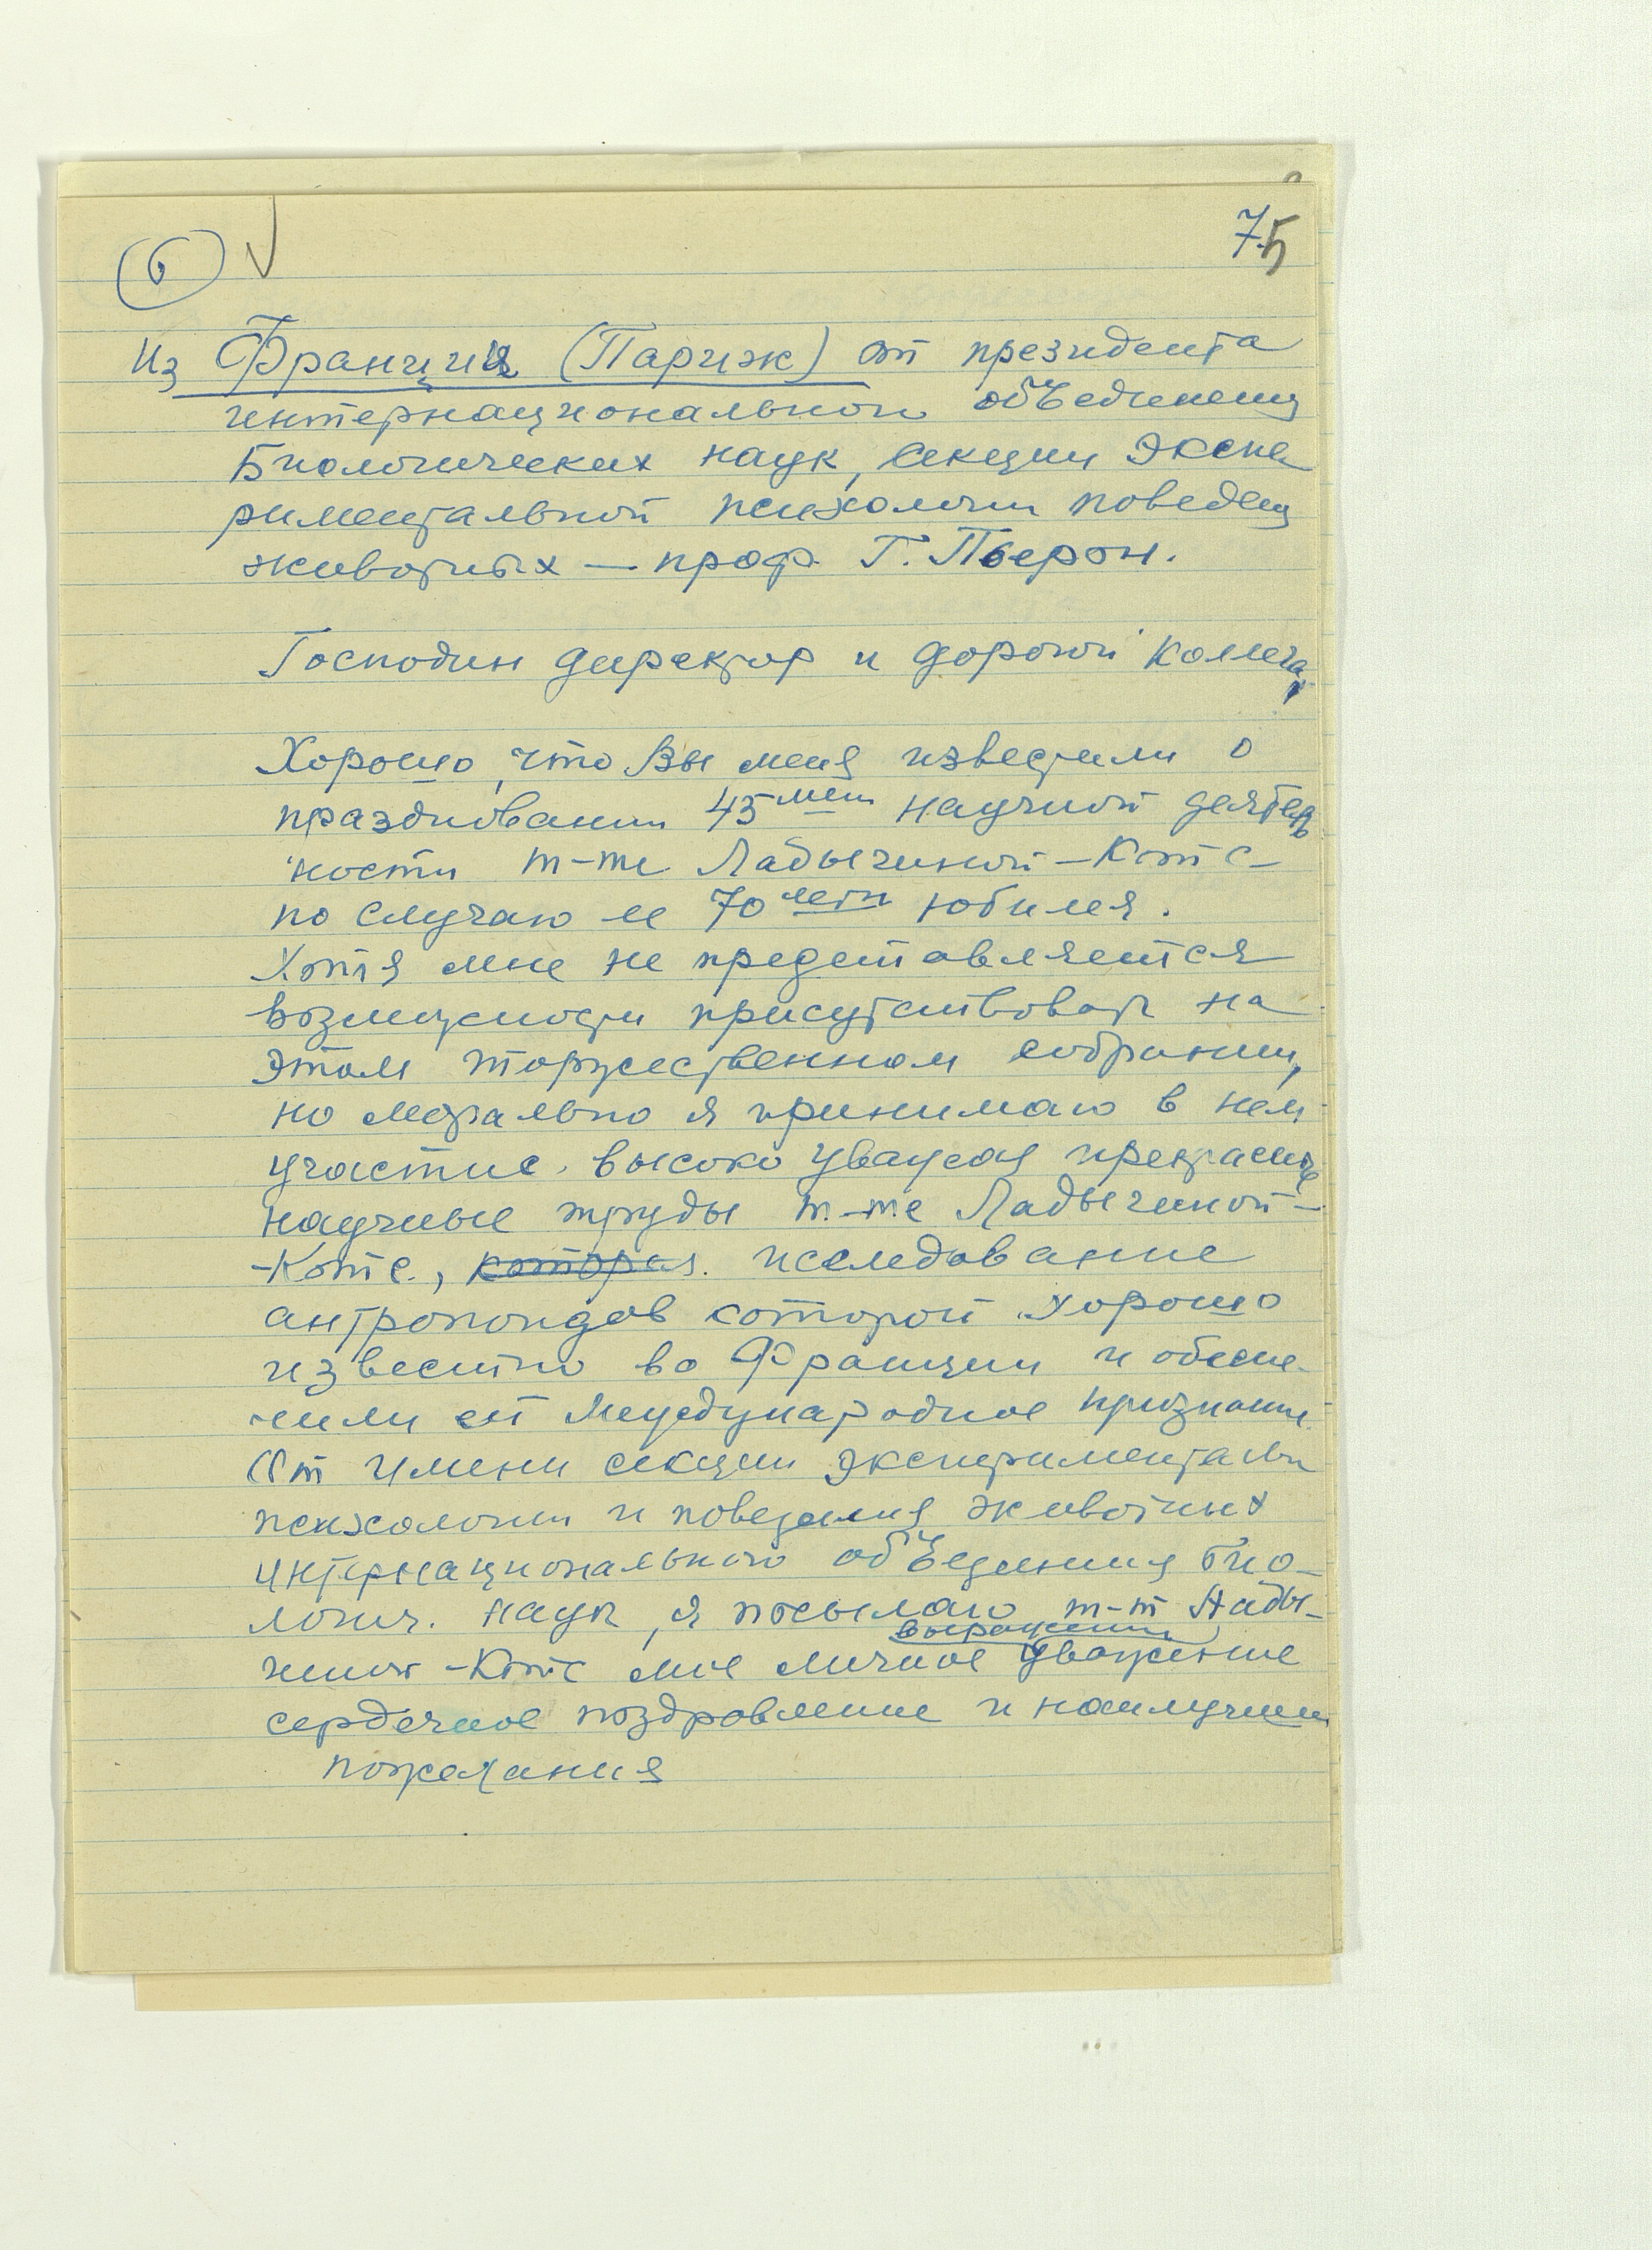 6
75
Из Франции (Париж) от президента
интернациональной объединения
Биологических наук, секции Экспе
риментальной психологии поведен
животных — проф. Г. Пьерон.
Господин директор и дорогой коллега,
Хорошо, что Вы меня известили о
праздновании 45 лет научной деятель
ности m-me Ладыгиной-Котс-
по случаю ее 70 летн юбилея.
Хотя мне не представляется
возможности присутствовать на
этом торжественном собрании,
но морально я принимаю в нем
участие. высоко уважая прекрасные
научные труды m-me Ладыгиной-
-Котс., которая. исследование
антропоидов которой хорошо
известно во Франции и обеспе-
чили ей Международное признание.
От имени секции эксперименталь
психологии и поведения животных
интернационального объединения био-
логич. наук, я посылаю m-m Лады-
выражении
гиной-Котс мое личное уважение
сердечное поздравление и наилучшии
пожелания